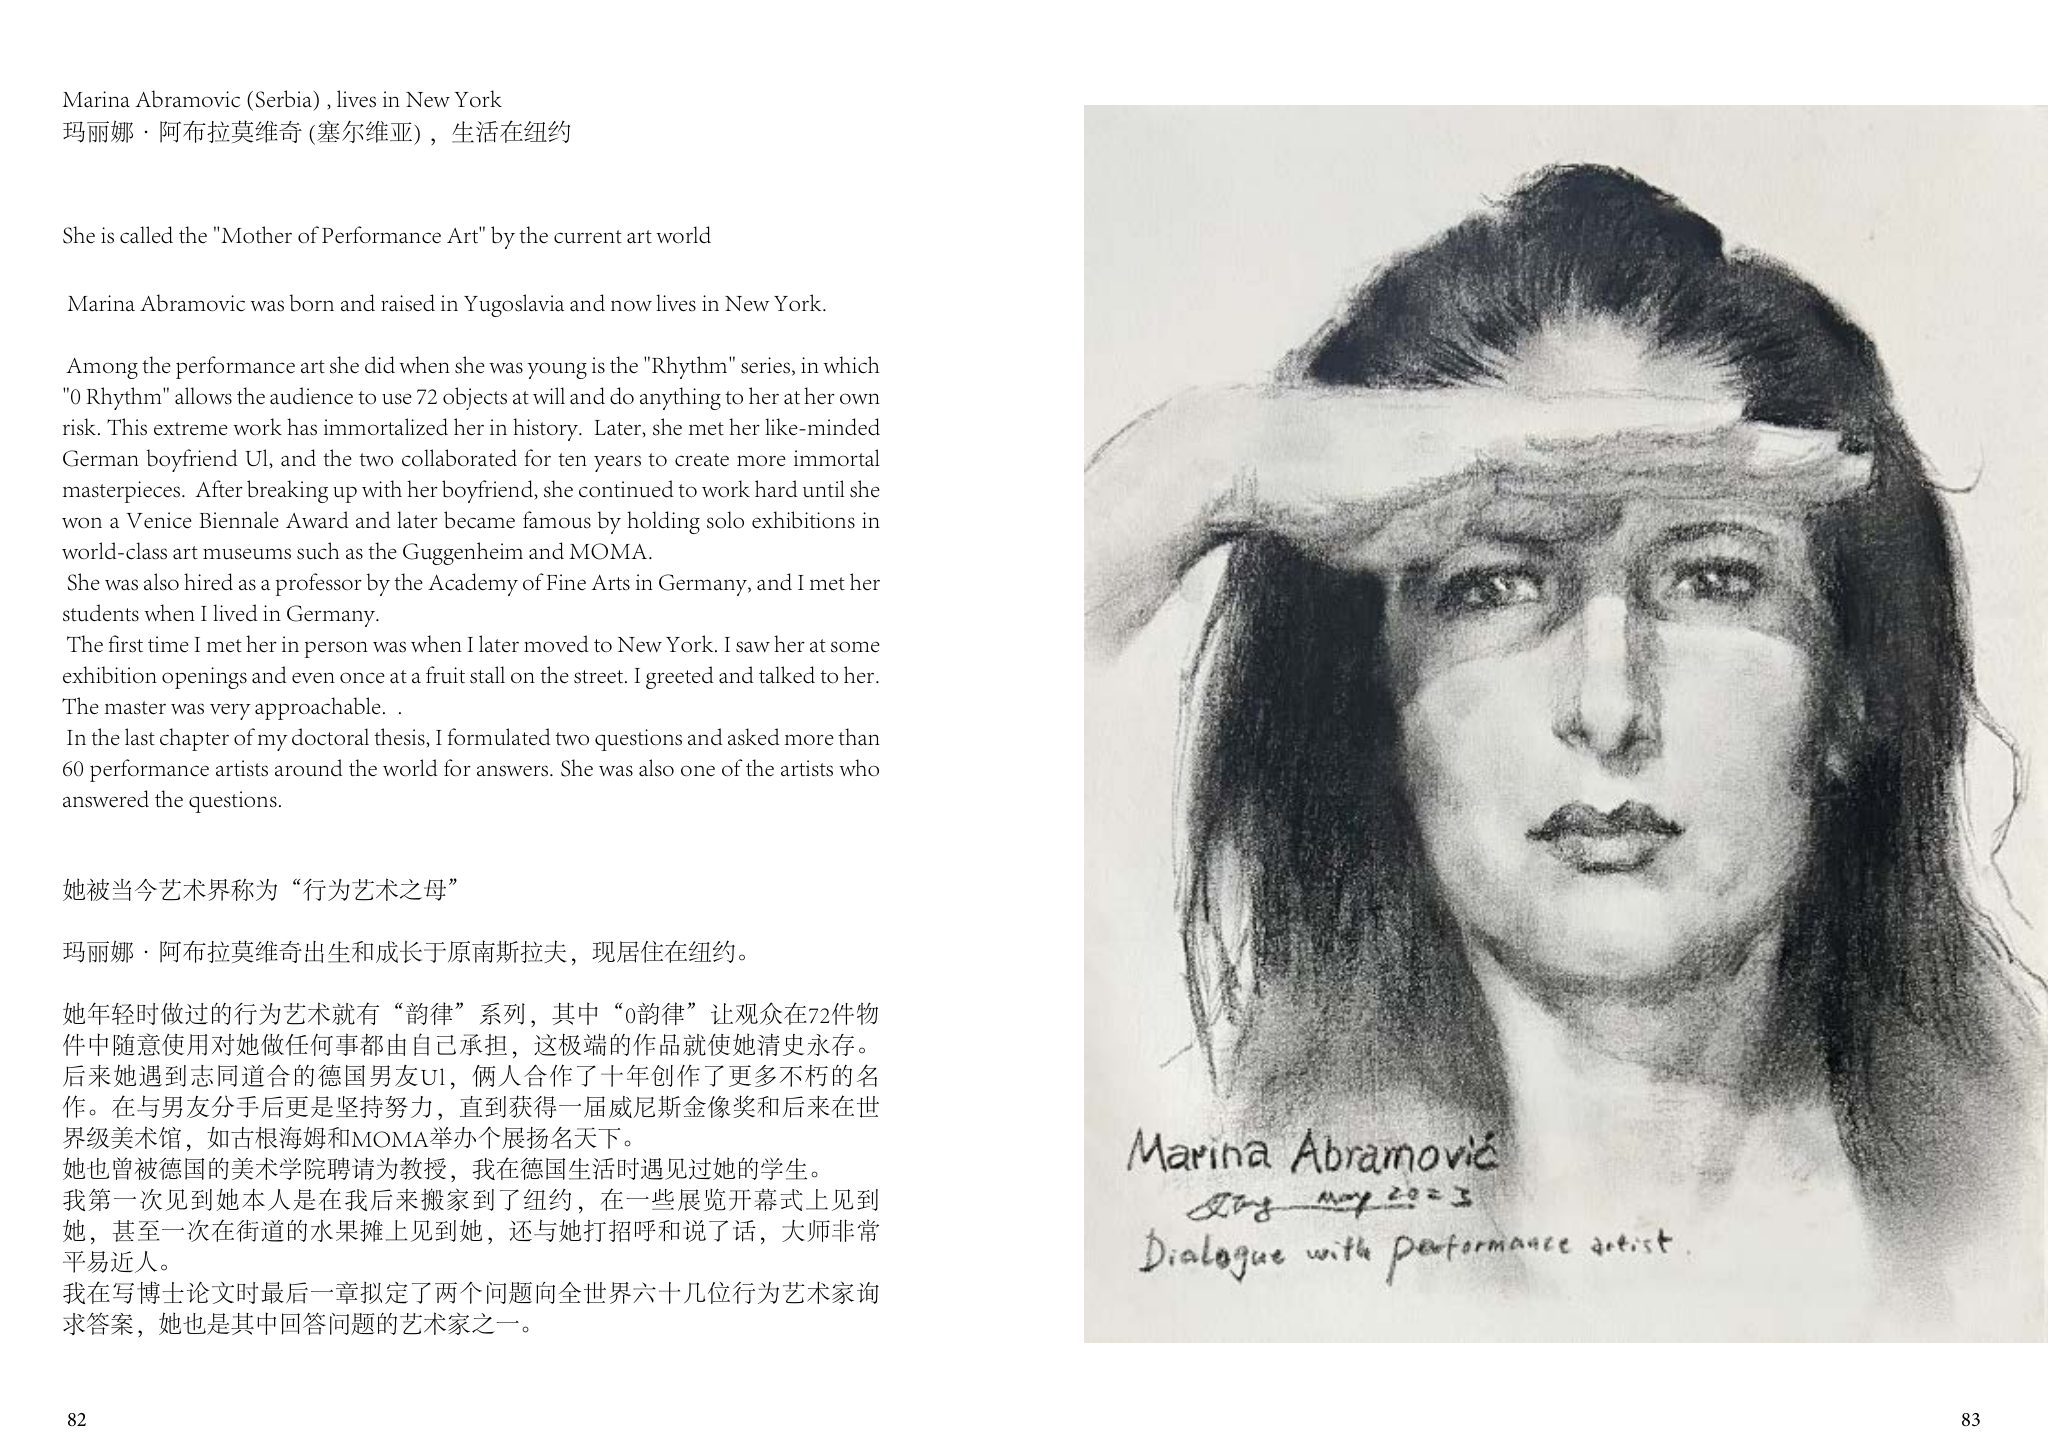 Marina Abramovic (Serbia) , lives in New York
玛丽娜 · 阿布拉莫维奇 (塞尔维亚) ，生活在纽约
She is called the "Mother of Performance Art" by the current art world
Marina Abramovic was born and raised in Yugoslavia and now lives in New York.
Among the performance art she did when she was young is the "Rhythm" series, in which
"0 Rhythm" allows the audience to use 72 objects at will and do anything to her at her own
risk. This extreme work has immortalized her in history.  Later, she met her like-minded
German boyfriend Ul, and the two collaborated for ten years to create more immortal
masterpieces.  After breaking up with her boyfriend, she continued to work hard until she
won a Venice Biennale Award and later became famous by holding solo exhibitions in
world-class art museums such as the Guggenheim and MOMA.
She was also hired as a professor by the Academy of Fine Arts in Germany, and I met her
students when I lived in Germany.
The first time I met her in person was when I later moved to New York. I saw her at some
exhibition openings and even once at a fruit stall on the street. I greeted and talked to her.
The master was very approachable.  .
In the last chapter of my doctoral thesis, I formulated two questions and asked more than
60 performance artists around the world for answers. She was also one of the artists who
answered the questions.
她被当今艺术界称为“行为艺术之母”
玛丽娜 · 阿布拉莫维奇出生和成长于原南斯拉夫，现居住在纽约。
她年轻时做过的行为艺术就有“韵律”系列，其中“0韵律”让观众在72件物
件中随意使用对她做任何事都由自己承担，这极端的作品就使她清史永存。
后来她遇到志同道合的德国男友Ul，俩人合作了十年创作了更多不朽的名
作。在与男友分手后更是坚持努力，直到获得一届威尼斯金像奖和后来在世
界级美术馆，如古根海姆和MOMA举办个展扬名天下。
她也曾被德国的美术学院聘请为教授，我在德国生活时遇见过她的学生。
我第一次见到她本人是在我后来搬家到了纽约，在一些展览开幕式上见到
她，甚至一次在街道的水果摊上见到她，还与她打招呼和说了话，大师非常
平易近人。
我在写博士论文时最后一章拟定了两个问题向全世界六十几位行为艺术家询
求答案，她也是其中回答问题的艺术家之一。
82
Marina Abramović
May 2023
Dialogue with performance artist.
83